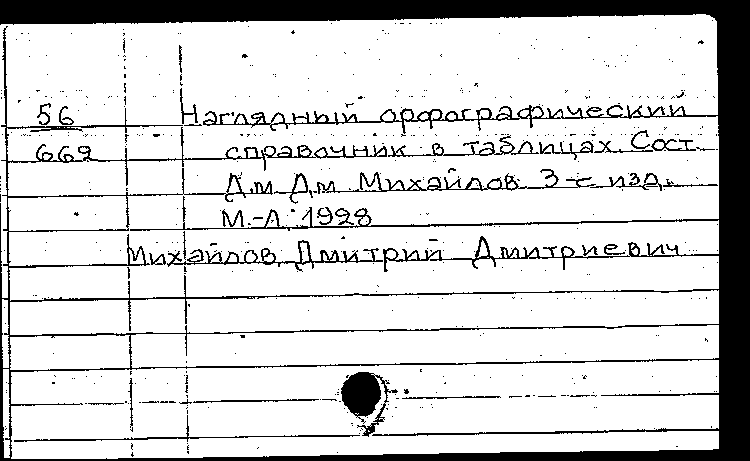 56 Наглядный орфографический
662 справочник в таблицах. Сост.
Дм. Дм. Михайлов 3-е изд.
М.-Л. 1928
Михайлов, Дмитрий Дмитриевич